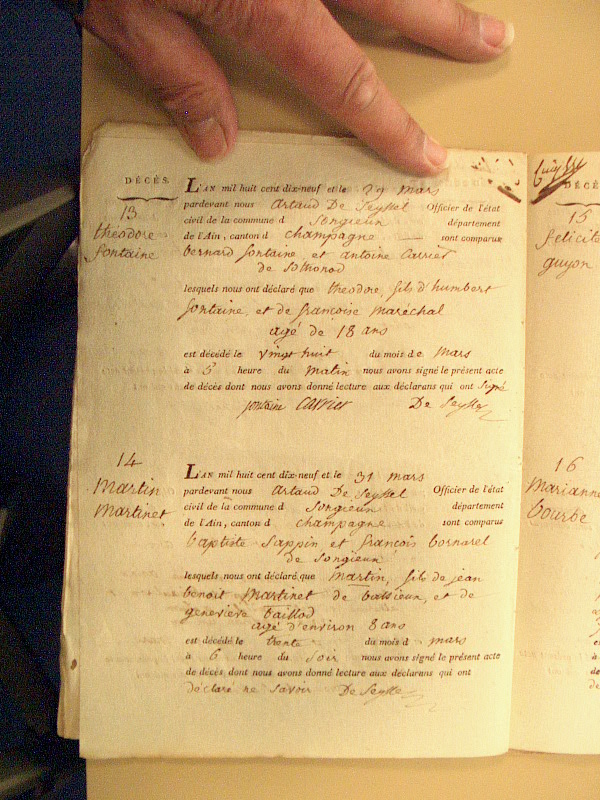 DÉCÈS.
13
théodore
fontaine
L'AN mil huit cent dix-neuf et le 29 mars
pardevant nous Artaud De Seyssel Officier de l'état
civil de la commune d Songieun département
de l'Ain, canton d champagne sont comparus
bernard fontaine et antoine Carrier
de Sothonod
lesquels nous ont déclaré que théodore, fils d'humbert
fontaine, et de francoise Maréchal
agé de 18 ans
est décédé le vingt huit du mois de Mars
à 5 heure du Matin nous avons signé le présent acte
de décès dont nous avons donné lecture aux déclarans qui ont signé
fontaine Carrier De Seyssel
14
Martin
Martinet
L'AN mil huit cent dix-neuf et le 31 mars
pardevant nous Artaud De Seyssel Officier de l'état
civil de la commune d Songieun département
de l'Ain, canton d champagne sont comparus
baptiste Sappin et françois bornarel
de Songieun
lesquels nous ont déclaré que Martin, fils de jean
benoit Martinet de bassieux, et de
geneviève baillod
agé d'environ 8 ans
est décédé le trente du mois d mars
à 6 heure du Soir nous avons signé le présent acte
de décès dont nous avons donné lecture aux déclarans qui ont
déclaré ne Savoir De Seyssel
DÉCÈ
15
félicité
guyon
16
Marianne
bourbe